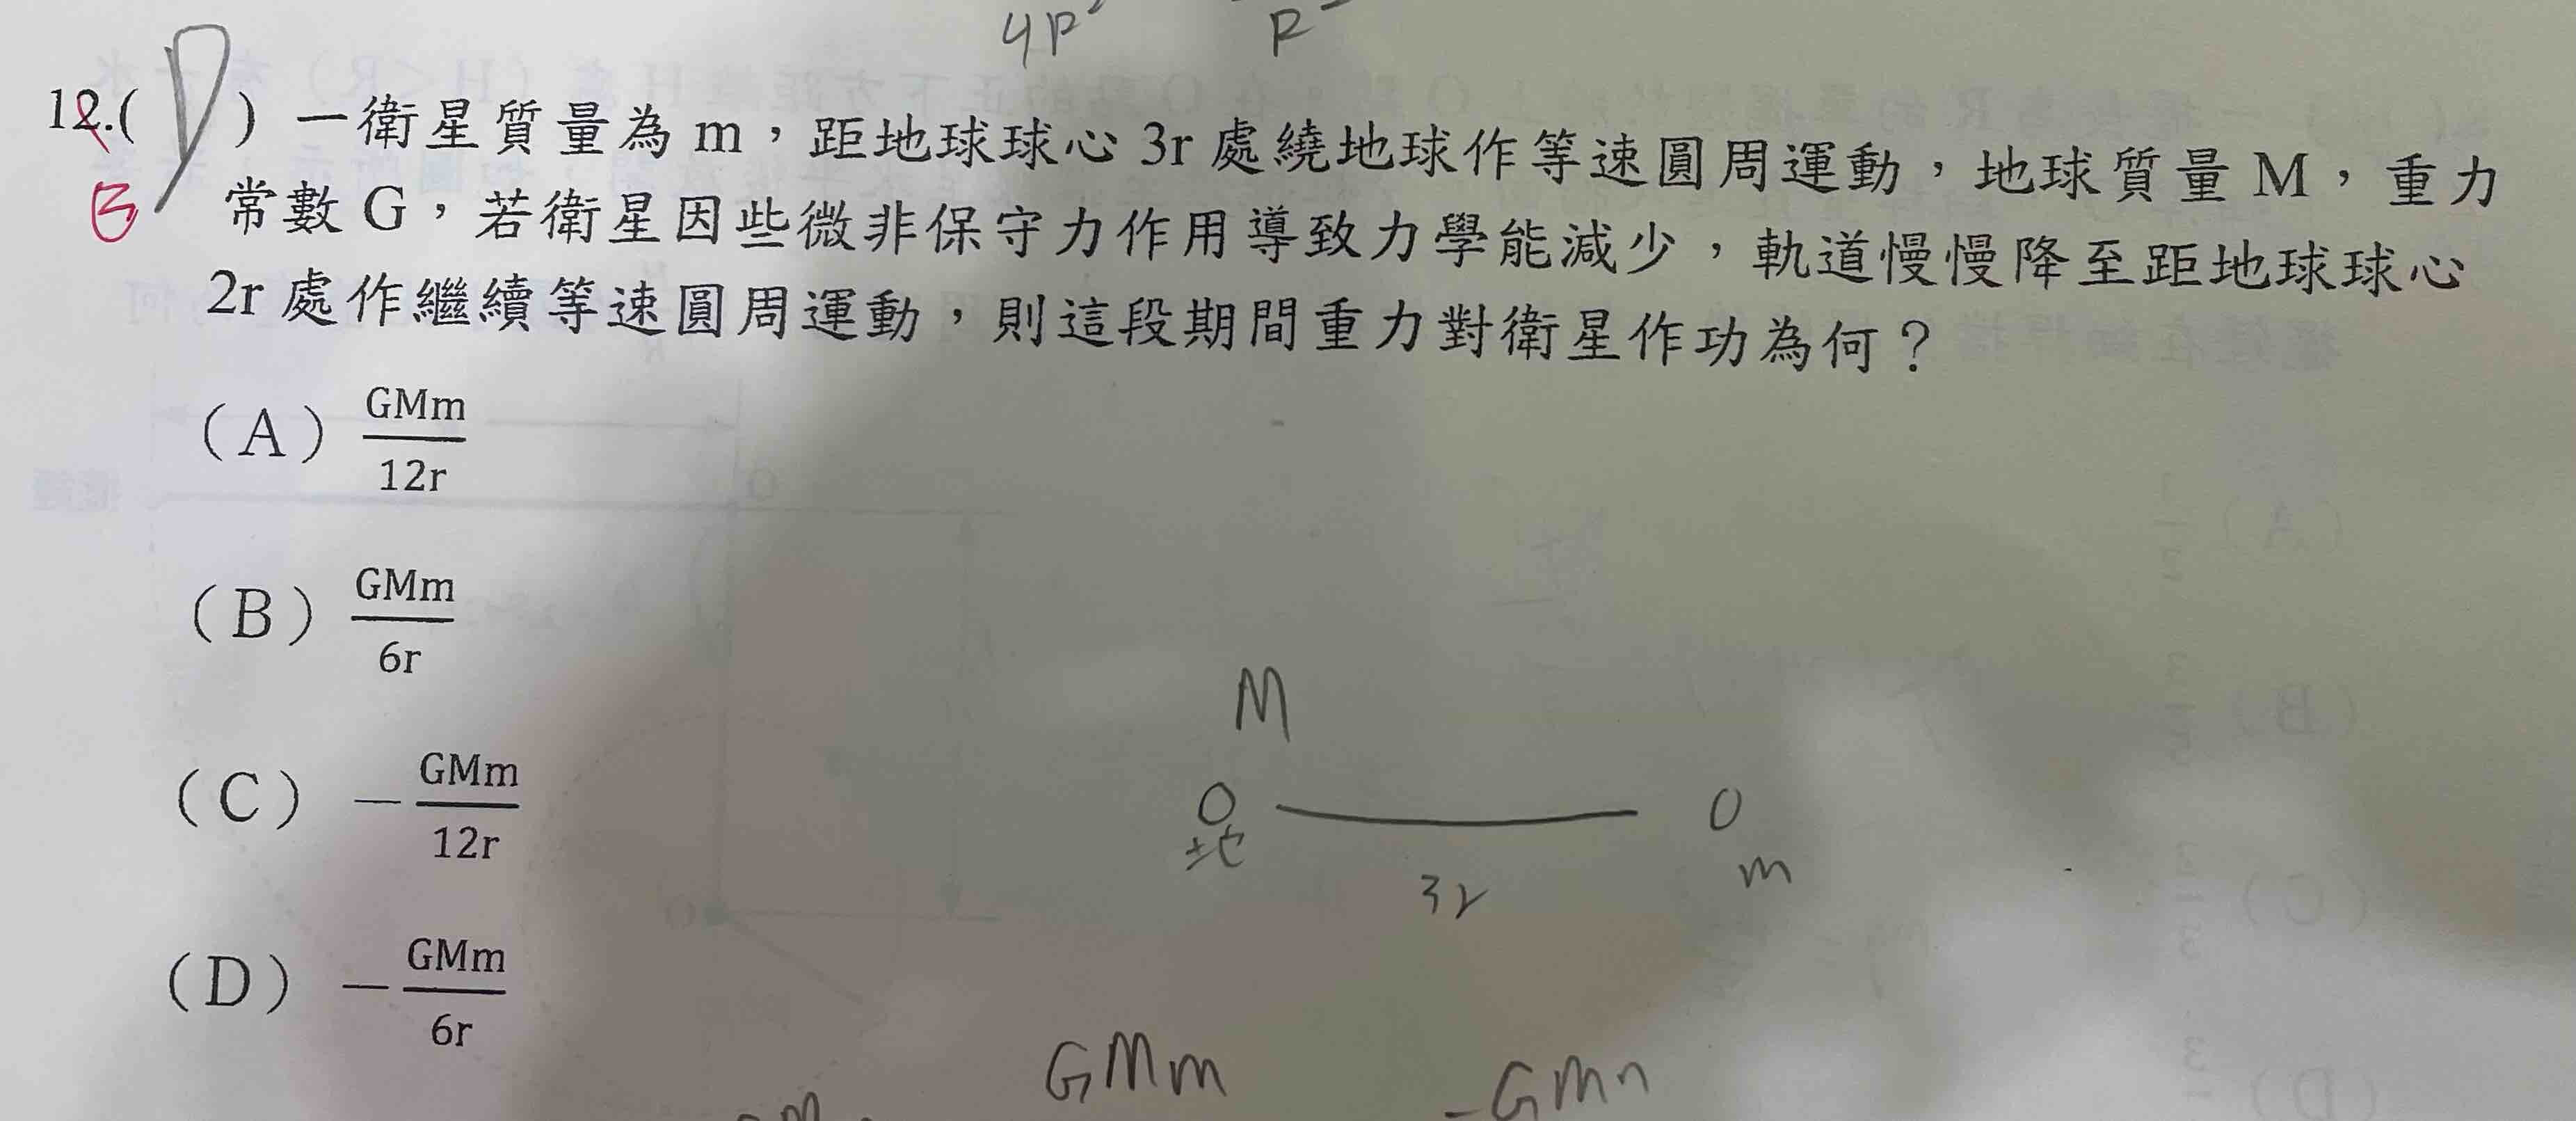 4R² R²
12.( D ) 一衛星質量為 m，距地球球心 3r 處繞地球作等速圓周運動，地球質量 M，重力
B 常數 G，若衛星因些微非保守力作用導致力學能減少，軌道慢慢降至距地球球心
2r 處作繼續等速圓周運動，則這段期間重力對衛星作功為何？
(A) GMm/12r
(B) GMm/6r
(C) －GMm/12r
(D) －GMm/6r
M
地
3r
m
GMm -GMm